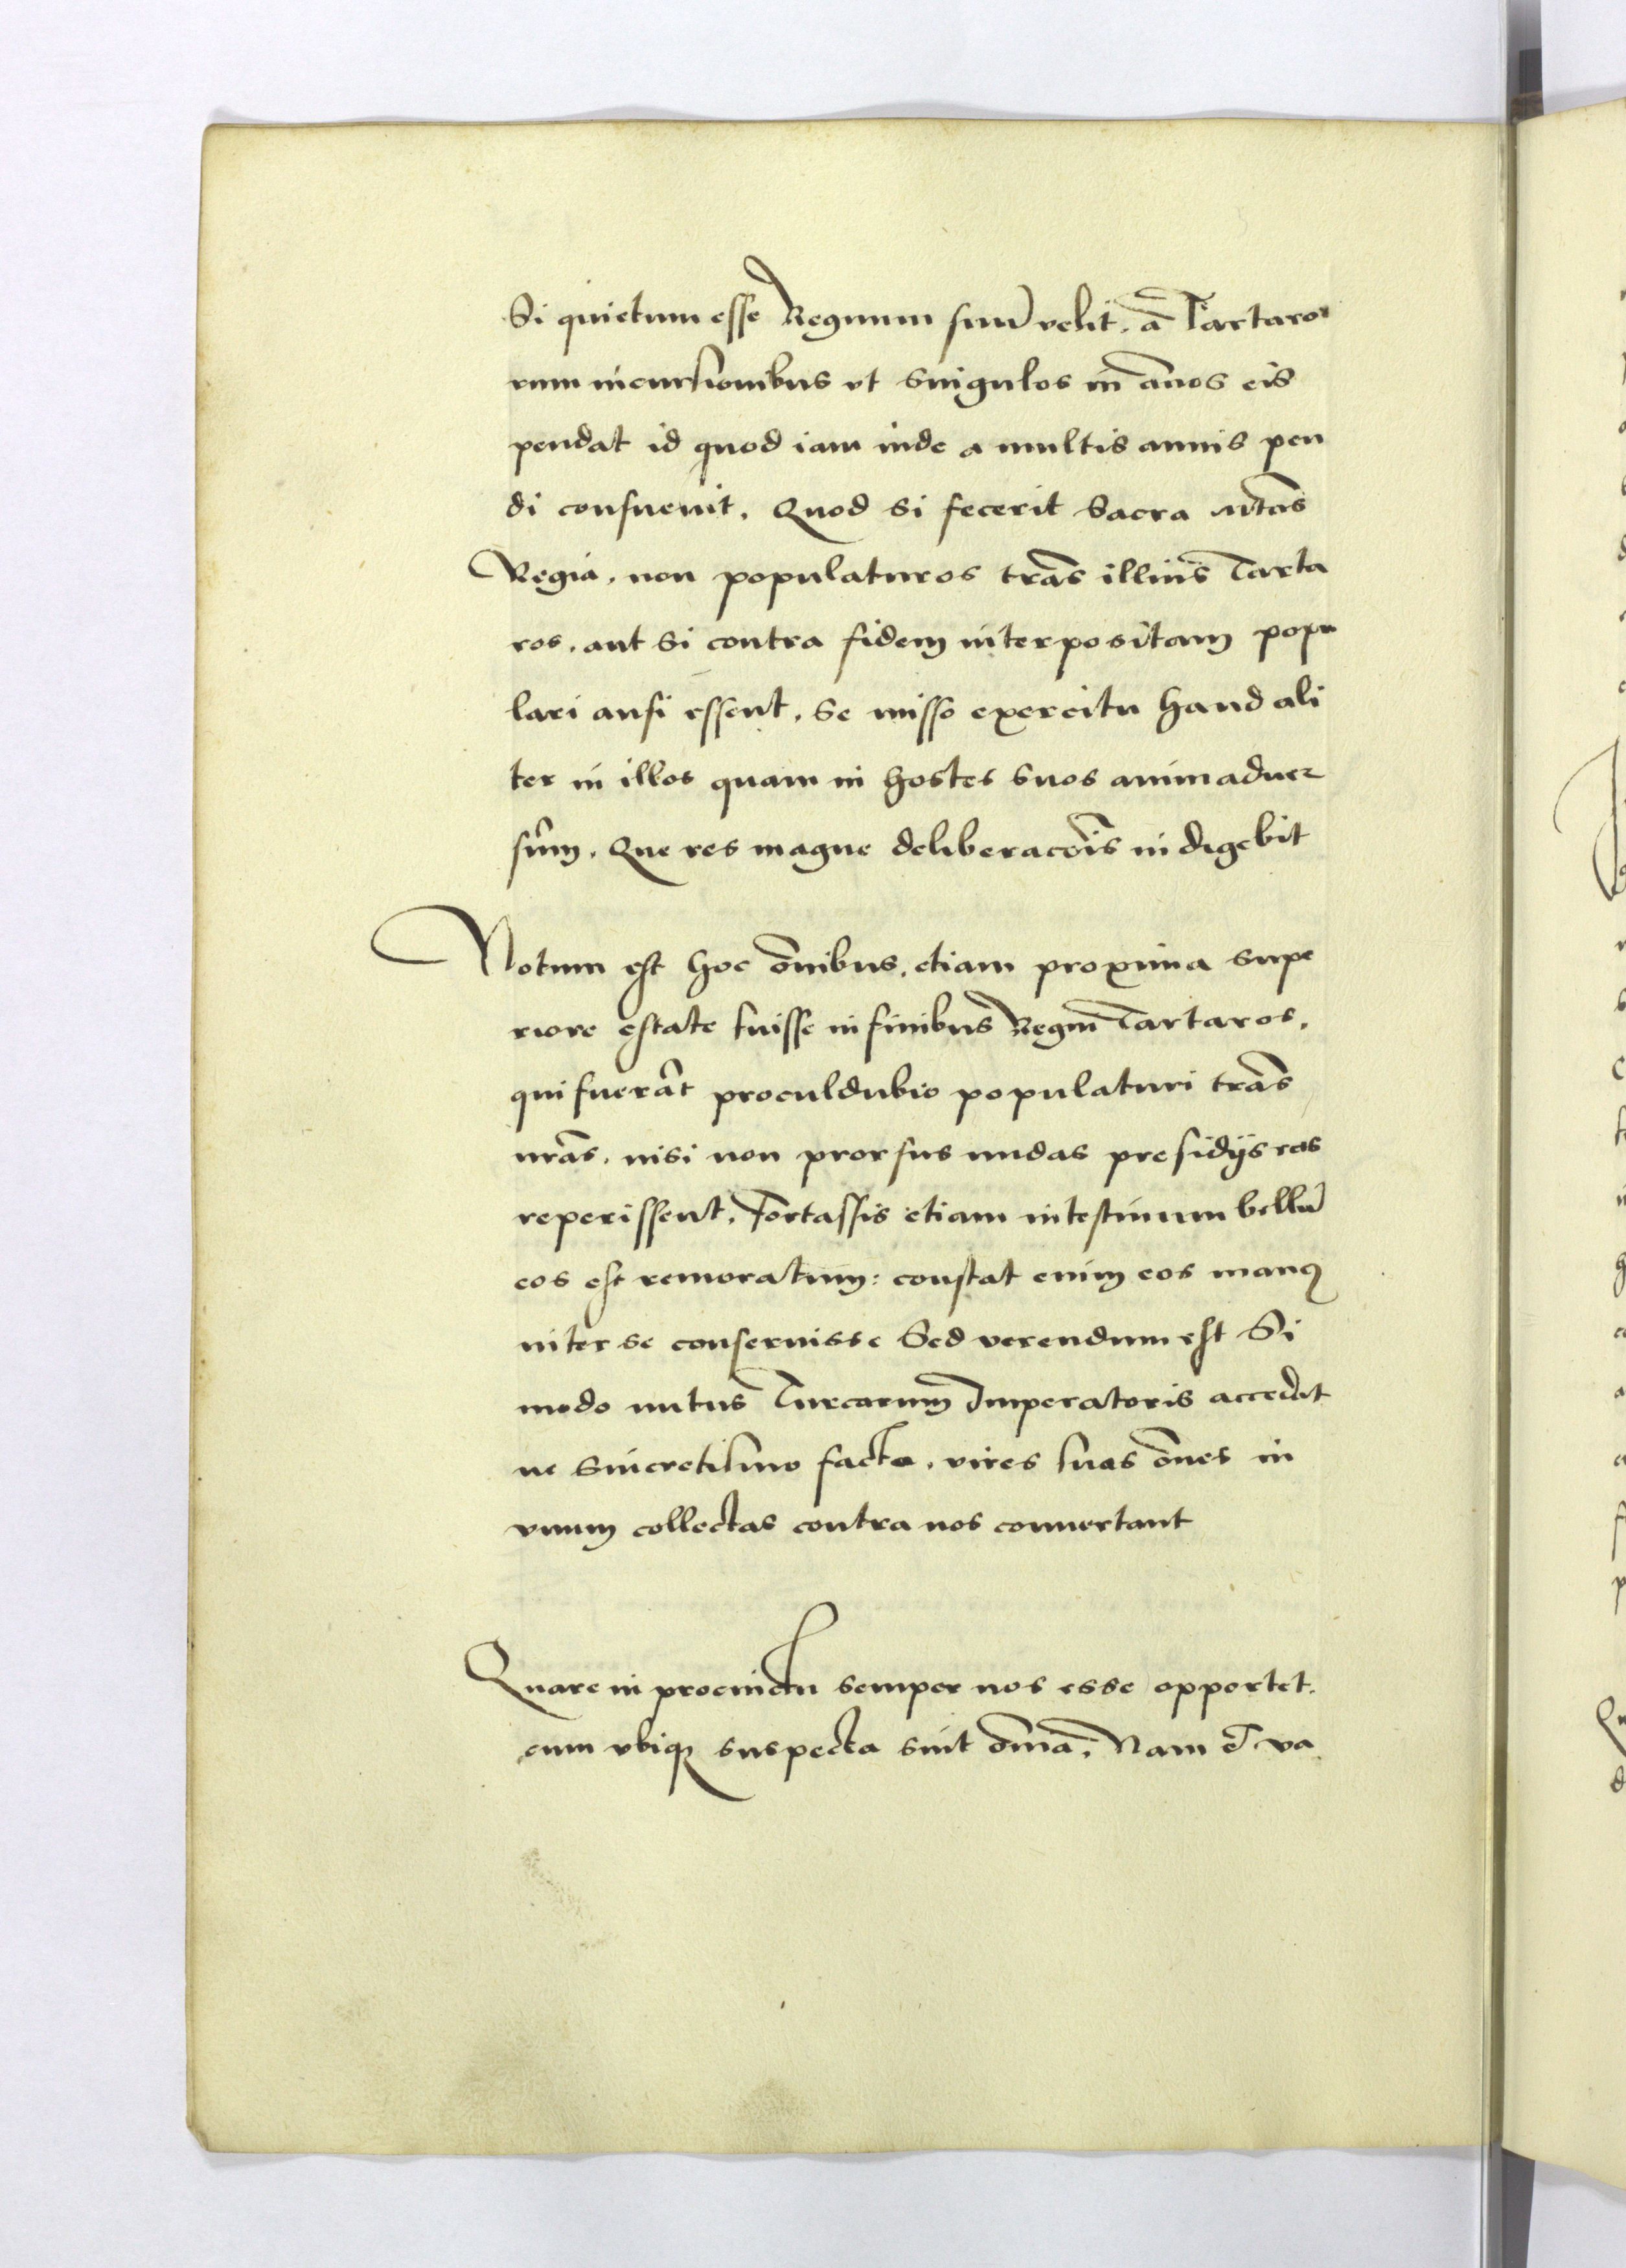 Si quietum esse Regnum suũ velit, a Tartaro
rum incursionibus vt singulos in ãnos eis
pendat id quod iam inde a multis annis pen
di consueuit. Quod si fecerit Sacra Mtãs
Regia, non populaturos trãs illius Tarta
ros, aut si contra fidem interpositam popu
lari ausi essent, se misso exercitu haud ali
ter in illos quam in hostes suos animaduer
surũm. Que res magne deliberacõis indigebit
Notum est hoc õmnibus, etiam proxima supe
riore estate fuisse in finibus Regni Tartaros,
qui fuerãt proculdubio populaturi trãs
nrãs, nisi non prorsus nudas presidijs eas
reperissent. Fortassis etiam intestinum bellũ
eos est remoratum: constat enim eos manꝰ
inter se conseruisse Sed verendum est Si
modo nutus Turcarum Imperatoris accedat
ne sincretismo facto, vires suas õnes in
vnum collectas contra nos conuertant
Quare in procinctu semper nos esse opportet.
cum vbiqꝫ suspecta sint õmia. Nam et va